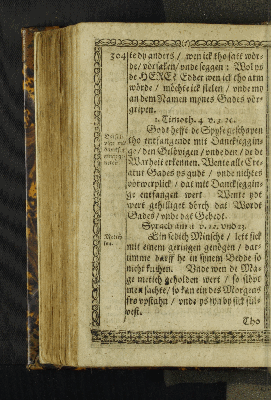 304 stedy anders / wen ick tho satt wör-
de / vörsaken / unde seggen : Wol ys
de HERE? Edder wen ick tho arm
wörde / möchte ick stelen / unde my
an dem Namen mynes Gades vör-
gripen.
1. Timoth. 4 v. 3 2c.
Godt hefft de Spyse geschapen
tho entfangende mit Dancksegginge
/ den Gelövigen / unde den / de de
Warheit erkennen. Wente alle Crea-
tur Gades ys gudt / unde nichtes
vörwerplick / dat mit Dancksegginge
entfangen wert. Wente ydt
wert gehilliget dörch dat Wordt
Gades / unde dat Gebedt.
Syrach am 31 v. 22. und 23.
Ein sedich Minsche / lett sick
mit einem geringen genögen / dar-
umme darff he in synem Bedde so
nicht kuchen. Unde wen de Ma-
ge metich geholden wert / so slöpt
men sachte / so kan ein des Morgens
fro upstahn / unde ys wa by sick sül-
vest.
Tho